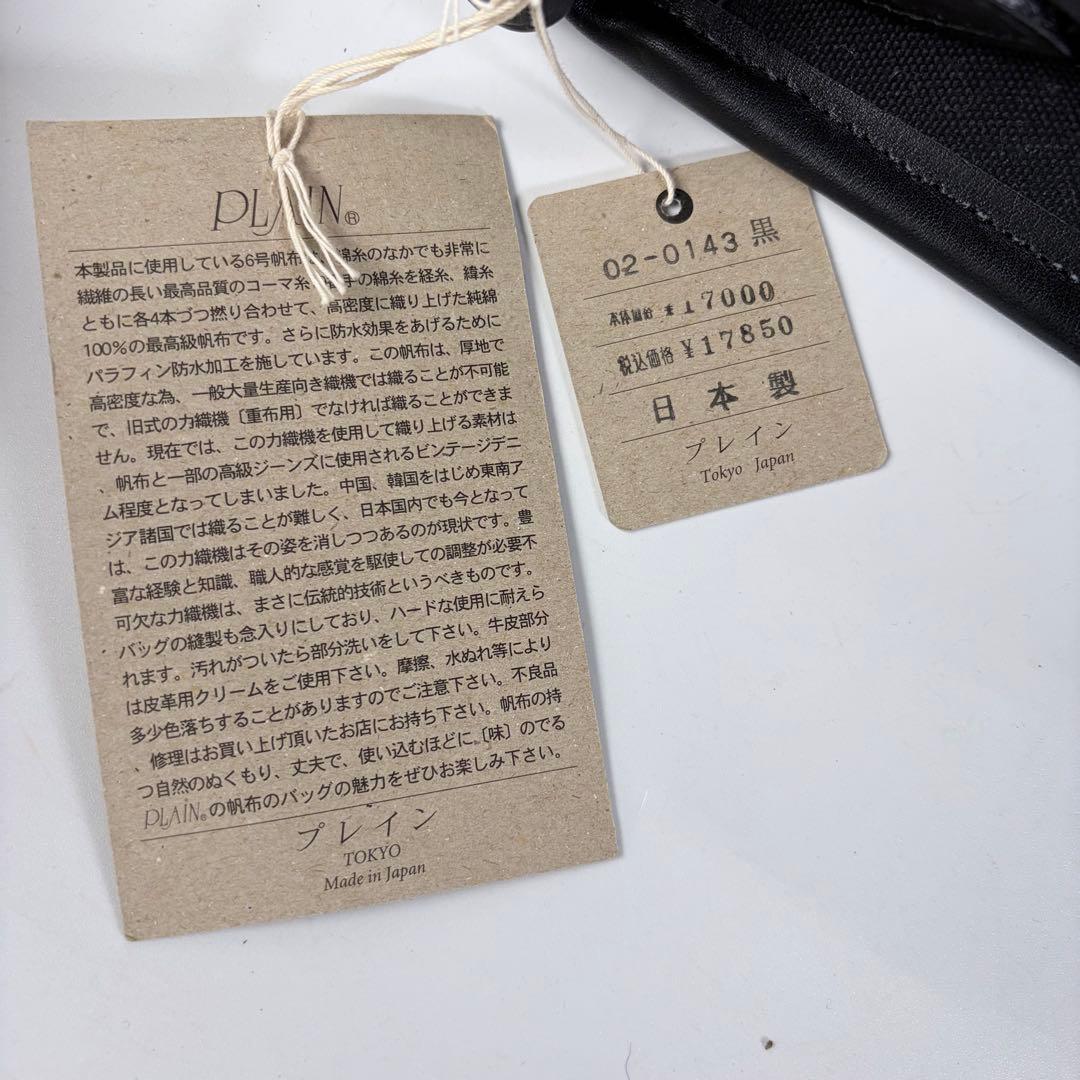 PLAIN®
本製品に使用している6号帆布 綿糸のなかでも非常に
繊維の長い最高品質のコーマ糸 手の綿糸を経糸、緯糸
ともに各4本づつ撚り合わせて、高密度に織り上げた純綿
100%の最高級帆布です。さらに防水効果をあげるために
パラフィン防水加工を施しています。この帆布は、厚地で
高密度な為、一般大量生産向き織機では織ることが不可能
で、旧式の力織機〔重布用〕でなければ織ることができま
せん。現在では、この力織機を使用して織り上げる素材は
、帆布と一部の高級ジーンズに使用されるビンテージデニ
ム程度となってしまいました。中国、韓国をはじめ東南ア
ジア諸国では織ることが難しく、日本国内でも今となって
は、この力織機はその姿を消しつつあるのが現状です。豊
富な経験と知識、職人的な感覚を駆使しての調整が必要不
可欠な力織機は、まさに伝統的技術というべきものです。
バッグの縫製も念入りにしており、ハードな使用に耐えら
れます。汚れがついたら部分洗いをして下さい。牛皮部分
は皮革用クリームをご使用下さい。摩擦、水ぬれ等により
多少色落ちすることがありますのでご注意下さい。不良品
、修理はお買い上げ頂いたお店にお持ち下さい。帆布の持
つ自然のぬくもり、丈夫で、使い込むほどに〔味〕のでる
PLAIN®の帆布のバッグの魅力をぜひお楽しみ下さい。
プレイン
TOKYO
Made in Japan
02-0143 黒
本体価格 ¥17000
税込価格 ¥17850
日本製
プレイン
Tokyo Japan